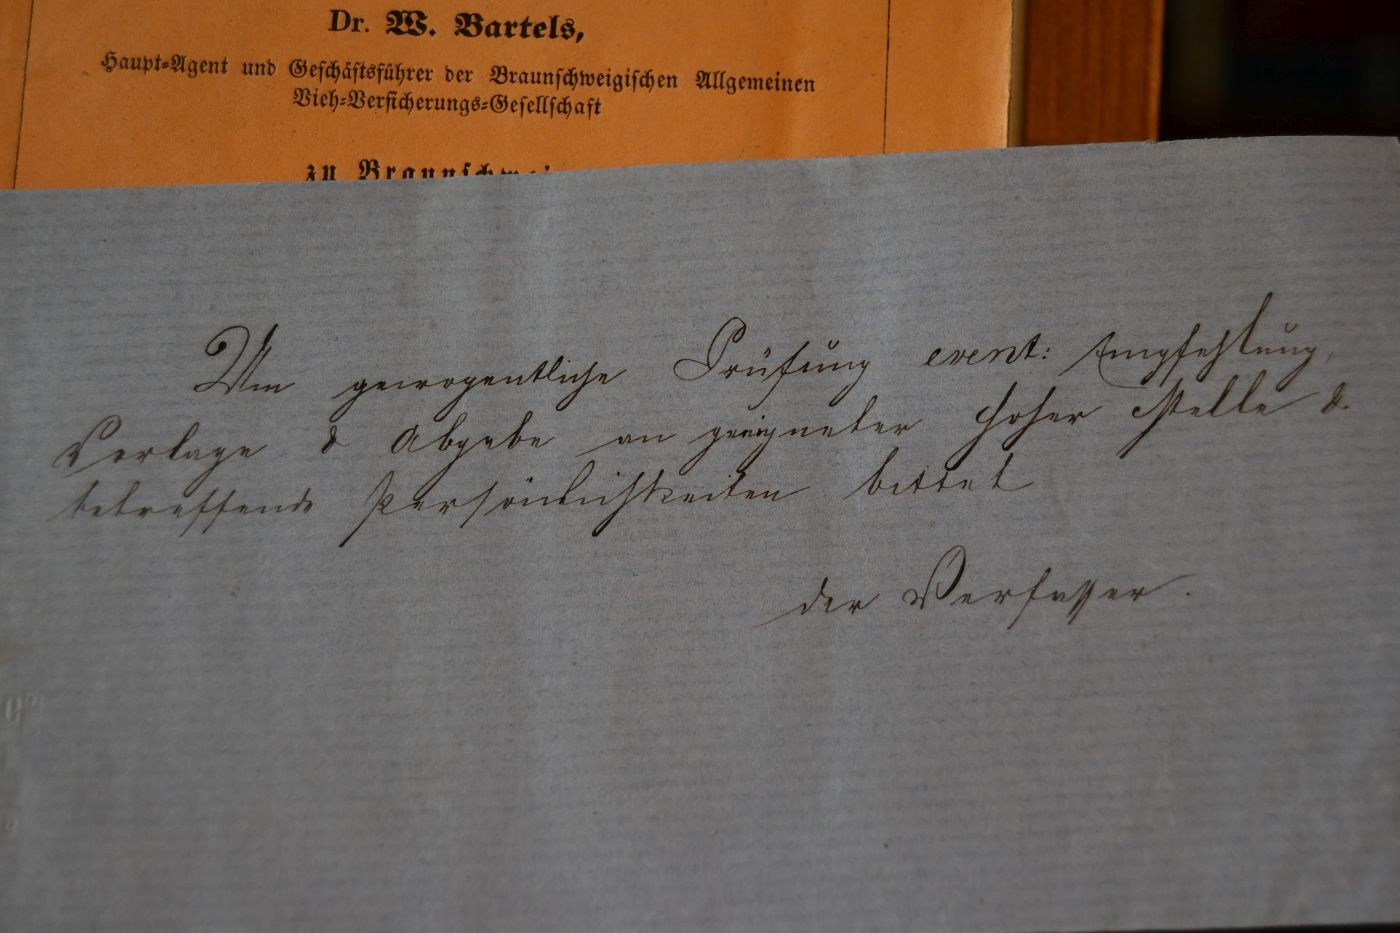 Dr. W. Bartels,
Haupt-Agent und Geschäftsführer der Braunschweigischen Allgemeinen
Vieh-Versicherungs-Gesellschaft
zu Braunschwei
Um gewogentliche Prüfung event: Empfehlung,
Vorlage & Abgabe an geeigneter hoher Stelle &
betreffende Persönlichkeiten bittet
der Verfasser.